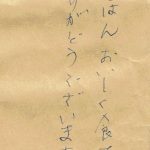 はんおいしく食
りがとうございま